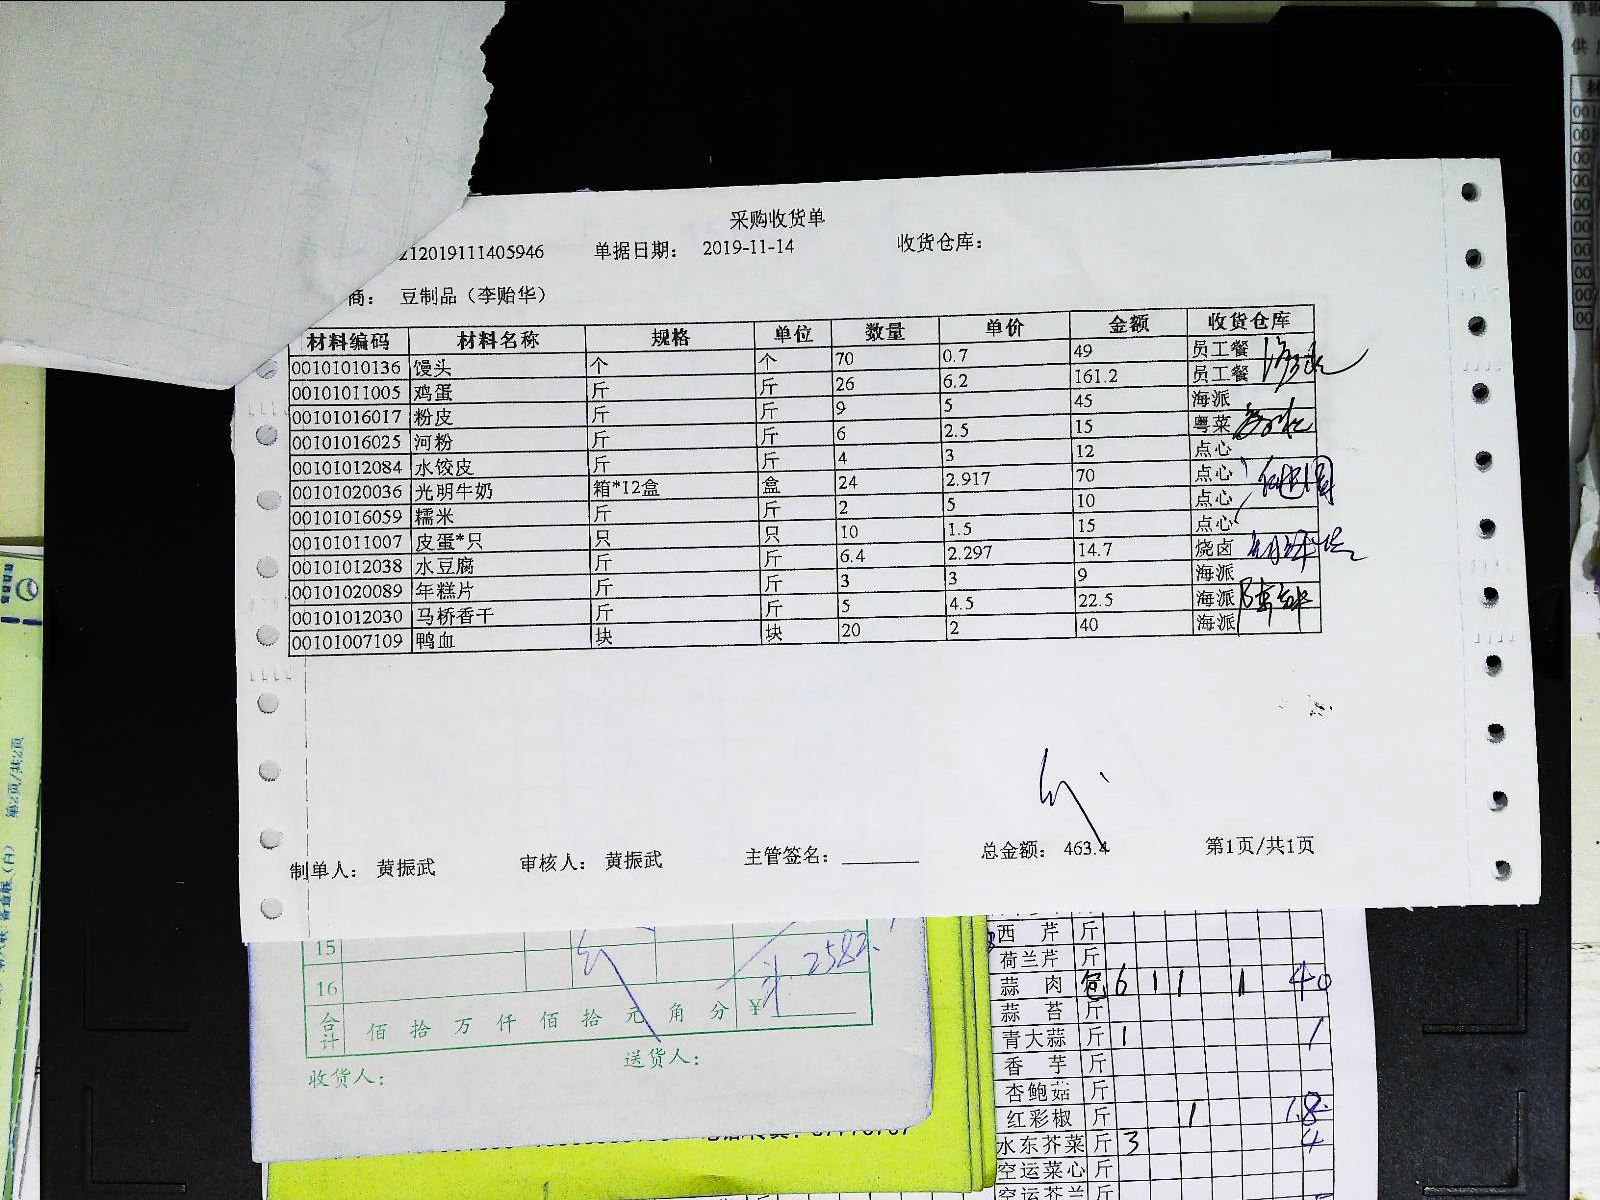 采购收货单
212019111405946 单据日期： 2019-11-14 收货仓库：
商： 豆制品（李贻华）
材料编码 材料名称 规格 单位 数量 单价 金额 收货仓库
00101010136 馒头 个 个 70 0.7 49 员工餐
00101011005 鸡蛋 斤 斤 26 6.2 161.2 员工餐
00101016017 粉皮 斤 斤 9 5 45 海派
00101016025 河粉 斤 斤 6 2.5 15 粤菜
00101012084 水饺皮 斤 斤 4 3 12 点心
00101020036 光明牛奶 箱*12盒 盒 24 2.917 70 点心
00101016059 糯米 斤 斤 2 5 10 点心
00101011007 皮蛋*只 只 只 10 1.5 15 点心
00101012038 水豆腐 斤 斤 6.4 2.297 14.7 烧卤
00101020089 年糕片 斤 斤 3 3 9 海派
00101012030 马桥香干 斤 斤 5 4.5 22.5 海派
00101007109 鸭血 块 块 20 2 40 海派
制单人： 黄振武 审核人： 黄振武 主管签名： 总金额： 463.4 第1页/共1页
15
16
合计 佰 拾 万 仟 佰 拾 元 角 分 ¥
收货人： 送货人：
西芹 斤
荷兰芹 斤
蒜肉 包 6 1 1 1 40
蒜苔 斤
青大蒜 斤 1 1
香芋 斤
杏鲍菇 斤
红彩椒 斤 1 1.8
水东芥菜 斤 3 4
空运菜心 斤
空运芥兰 斤
第2页/共2页